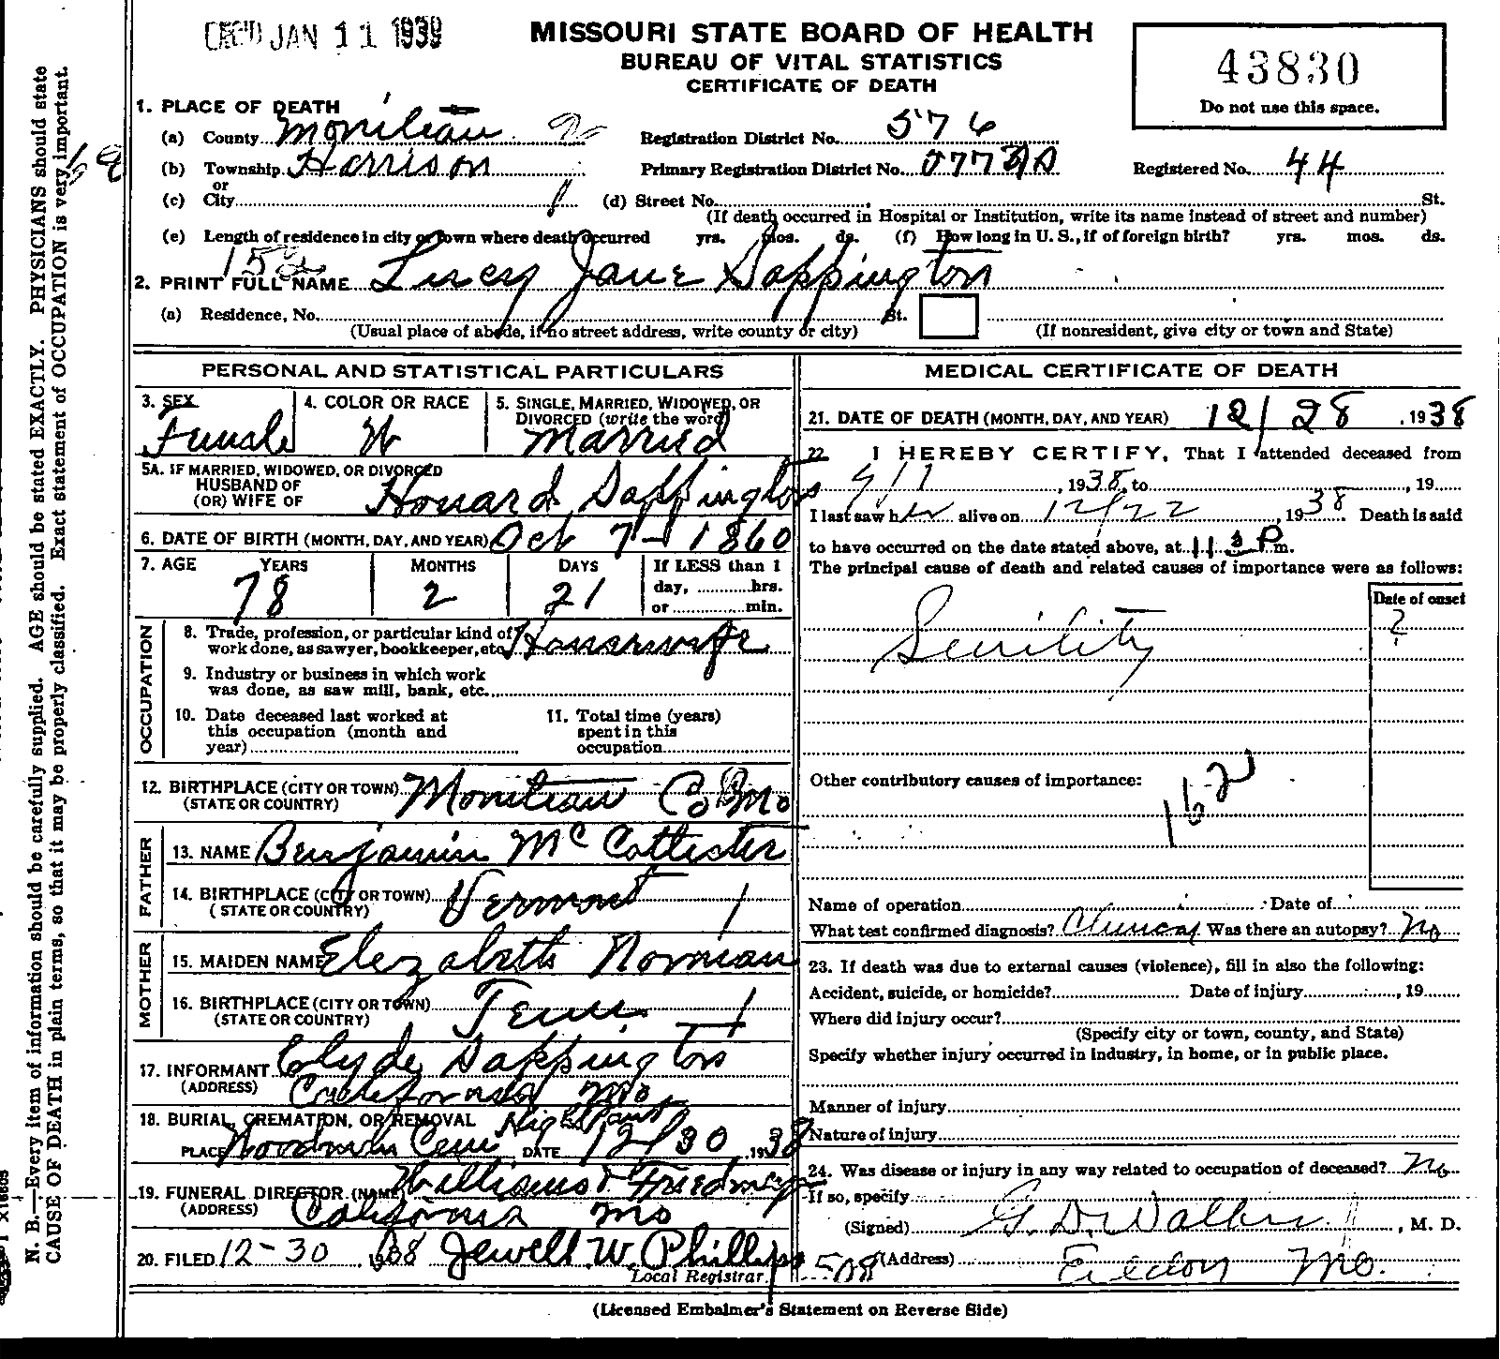 REC'D JAN 11 1939
MISSOURI STATE BOARD OF HEALTH
BUREAU OF VITAL STATISTICS
CERTIFICATE OF DEATH
43830
Do not use this space.
1. PLACE OF DEATH
(a) County Moniteau
Registration District No. 576
(b) Township Harrison
Primary Registration District No.
Registered No. 44
or
(c) City
(d) Street No. St.
(If death occurred in Hospital or Institution, write its name instead of street and number)
(e) Length of residence in city or town where death occurred yrs. mos. ds. (f) How long in U. S., if of foreign birth? yrs. mos. ds.
152
2. PRINT FULL NAME Lucy Jane Sappington
(a) Residence, No. St.
(Usual place of abode, if no street address, write county or city) (If nonresident, give city or town and State)
PERSONAL AND STATISTICAL PARTICULARS
3. SEX Female
4. COLOR OR RACE W
5. SINGLE, MARRIED, WIDOWED, OR DIVORCED (write the word) Married
5A. IF MARRIED, WIDOWED, OR DIVORCED
HUSBAND OF
(OR) WIFE OF Howard Sappington
6. DATE OF BIRTH (MONTH, DAY, AND YEAR) Oct 7 - 1860
7. AGE YEARS MONTHS DAYS If LESS than 1
78 2 21 day, hrs.
or min.
OCCUPATION
8. Trade, profession, or particular kind of
work done, as sawyer, bookkeeper, etc. Housewife
9. Industry or business in which work
was done, as saw mill, bank, etc.
10. Date deceased last worked at
this occupation (month and
year)
11. Total time (years)
spent in this
occupation
12. BIRTHPLACE (CITY OR TOWN) Moniteau Co Mo
(STATE OR COUNTRY)
FATHER
13. NAME Benjamin McCollister
14. BIRTHPLACE (CITY OR TOWN) Vermont
(STATE OR COUNTRY)
MOTHER
15. MAIDEN NAME Elezabeth Norman
16. BIRTHPLACE (CITY OR TOWN) Tenn.
(STATE OR COUNTRY)
17. INFORMANT Clyde Sappington
(ADDRESS) California Mo
18. BURIAL, CREMATION, OR REMOVAL High Point
PLACE Cem DATE 12/30, 1938
19. FUNERAL DIRECTOR (NAME) Williams & Friedmeyer
(ADDRESS) California Mo
20. FILED 12-30, 1938 Jewell W. Phillips
Local Registrar.
MEDICAL CERTIFICATE OF DEATH
21. DATE OF DEATH (MONTH, DAY, AND YEAR) 12/28, 1938
22. I HEREBY CERTIFY, That I attended deceased from
, 1938, to , 19
I last saw her alive on 12/22 1938. Death is said
to have occurred on the date stated above, at P m.
The principal cause of death and related causes of importance were as follows:
Date of onset
Senility ?
Other contributory causes of importance:
162
Name of operation Date of
What test confirmed diagnosis? Clinical Was there an autopsy? No
23. If death was due to external causes (violence), fill in also the following:
Accident, suicide, or homicide? Date of injury , 19
Where did injury occur?
(Specify city or town, county, and State)
Specify whether injury occurred in industry, in home, or in public place.
Manner of injury
Nature of injury
24. Was disease or injury in any way related to occupation of deceased? No
If so, specify
(Signed) G. D. Walker, M. D.
508 (Address) Eldon Mo.
(Licensed Embalmer's Statement on Reverse Side)
N. B.—Every item of information should be carefully supplied. AGE should be stated EXACTLY. PHYSICIANS should state
CAUSE OF DEATH in plain terms, so that it may be properly classified. Exact statement of OCCUPATION is very important.